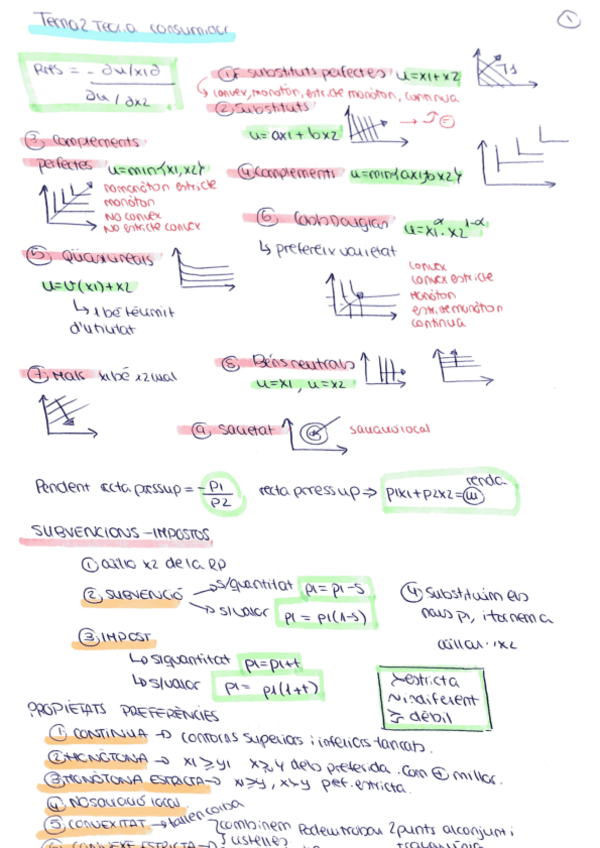 Tema 2 Teoria consumidor
1
RMS = - ∂u/∂x1
∂u/∂x2
① substituts perfectes u=x1+x2
convex, monotòn, estricte monòton, continua
② Substituts
u=ax1+bx2
③ Complements
perfectes u=min{x1,x2}
no monòton estricte
monòton
NO convex
NO estricte convex
④ Complements u=min{ax1,bx2}
⑥ Cobb Douglas u=x1^α·x2^1-α
↳ prefereix varietat
convex
convex estricte
Monòton
estricte monòton
continua
⑤ Quasilineals
u=v(x1)+x2
↳ 1 bé té límit
d'utilitat
⑦ Mals x1 bé x2 mal
⑧ Béns neutrals
u=x1, u=x2
⑨ Sacietat
sacietat local
Pendent recta pressup = -P1/P2
recta pressup ⇒ p1x1+p2x2=m
renda
SUBVENCIONS-IMPOSTOS
① aïllo x2 de la RP
② SUBVENCIÓ
s/quantitat p1=p1-s
s/valor p1=p1(1-s)
③ IMPOST
↳ s/quantitat p1=p1+t
↳ s/valor p1=p1(1+t)
④ Substituim els
nous p1, i tornem a
aïllar x2
≻ estricta
~ indiferent
≽ dèbil
PROPIETATS PREFERÈNCIES
① CONTINUA → contorns superiors i inferiors tancats.
② MONÒTONA → x1≥y1 x≽y debo preferida. Com + millor.
③ MONÒTONA ESTRICTA → x≥y, x≻y pref. estricta.
④ NO SACIACIÓ LOCAL.
⑤ CONVEXITAT →
combinem
cistelles
2 punts al conjunt i
⑥ CONVEXE ESTRICTA →